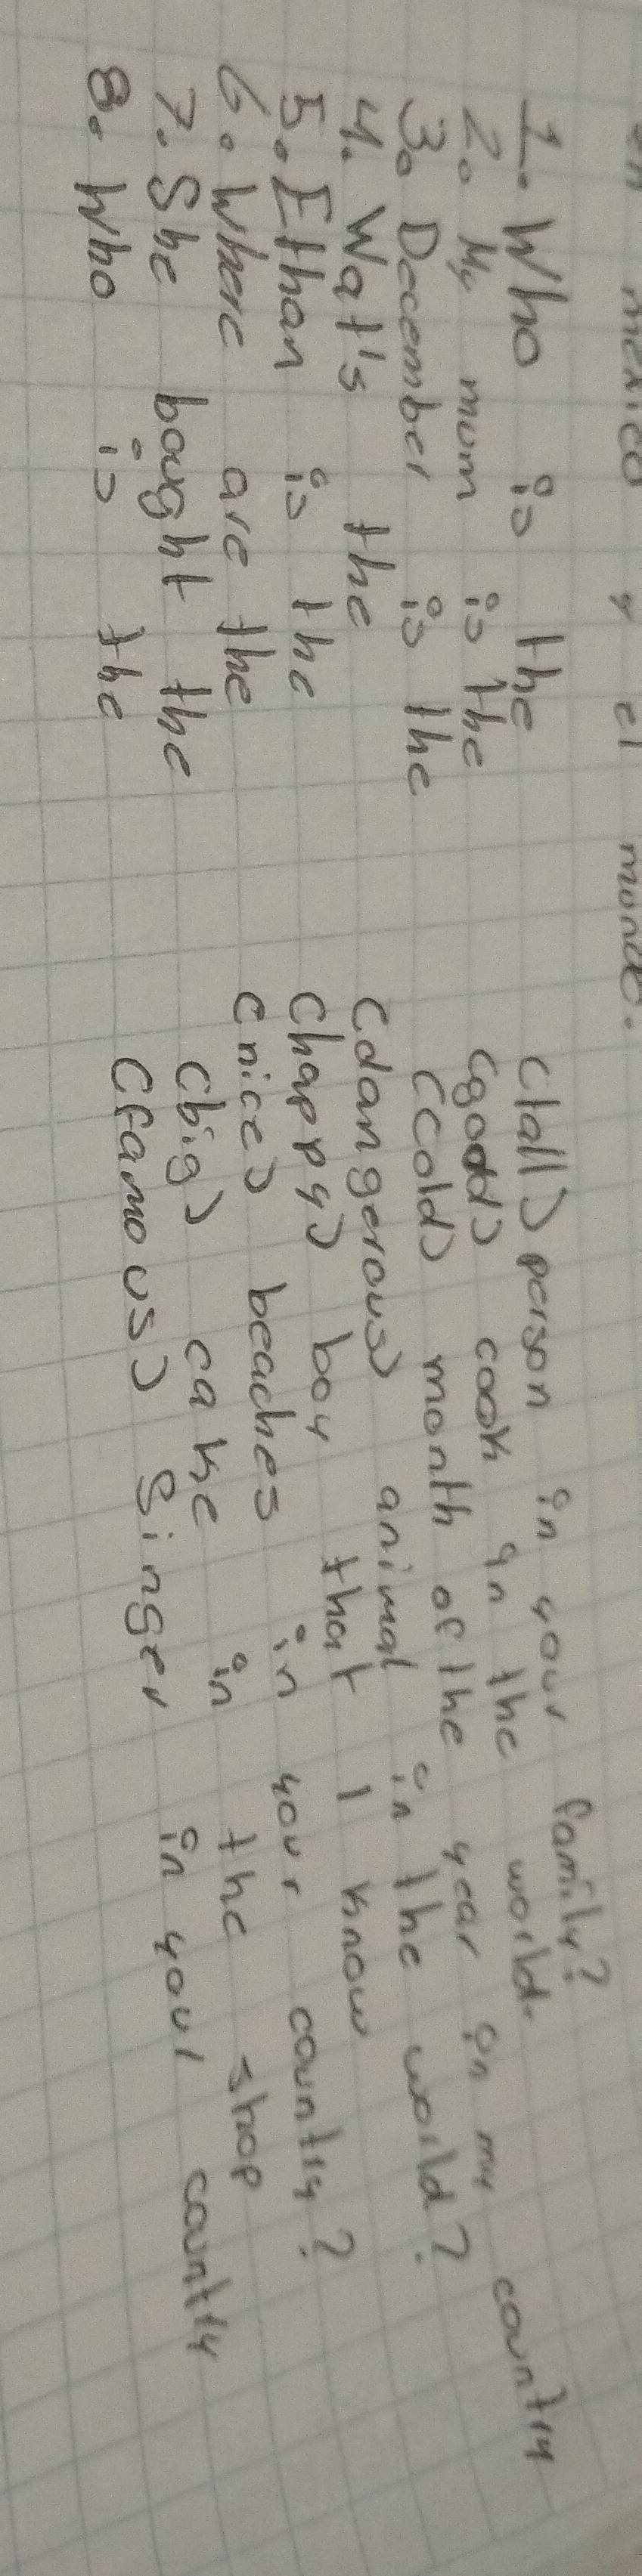 en mexico y el mondo.
1. Who is the (tall) person in your family?
2. My mum is the (good) cook in the world.
3. December is the (cold) month of the year in my country
4. Wat's the (dangerous) animal in the world?
5. Ethan is the (happy) boy that I know
6. Where are the (nice) beaches in your country?
7. She bought the (big) cake in the shop
8. Who is the (famous) singer in your country